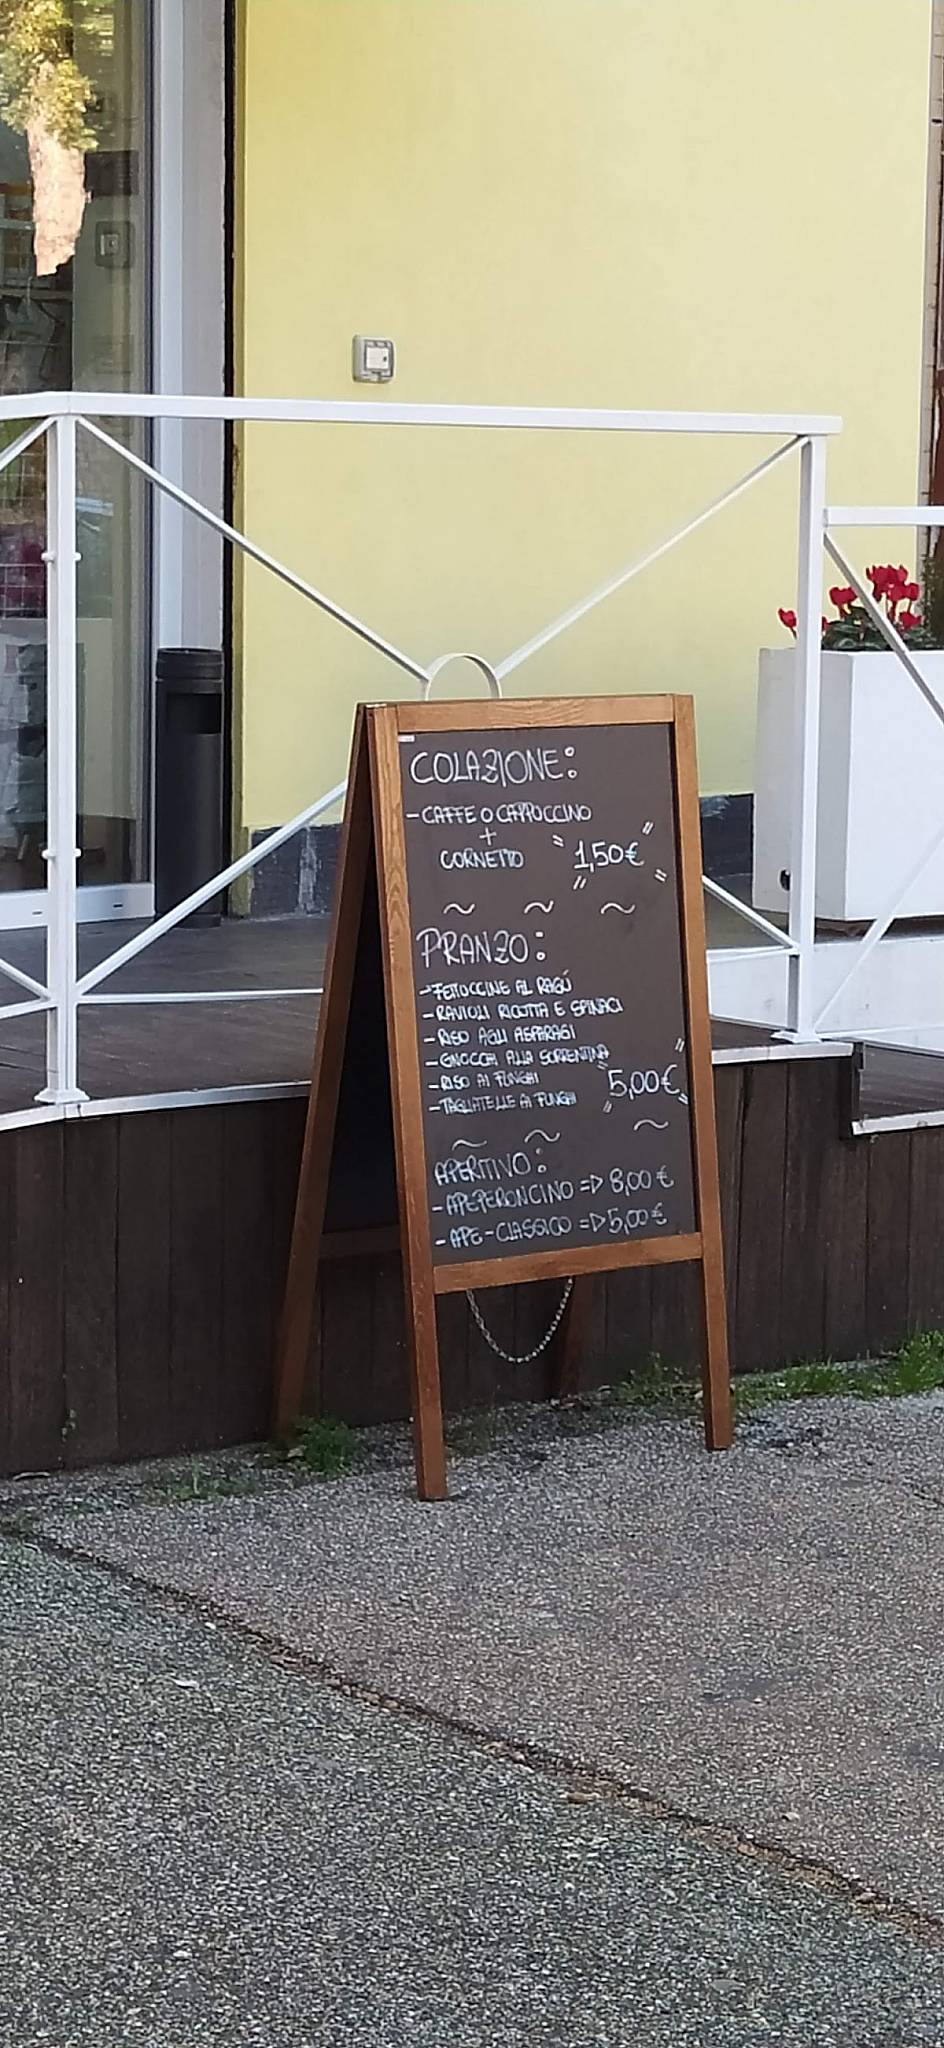 COLAZIONE:
- CAFFE O CAPPUCCINO
+
CORNETTO "1,50€"
~ ~ ~
PRANZO:
- FETTUCCINE AL RAGÚ
- RAVIOLI RICOTTA E SPINACI
- RISO AGLI ASPARAGI
- GNOCCHI ALLA SORRENTINA
- RISO AI FUNGHI "5,00€"
- TAGLIATELLE AI FUNGHI
~ ~ ~
APERITIVO:
- APEPERONCINO => 8,00€
- APE-CLASSICO => 5,00€